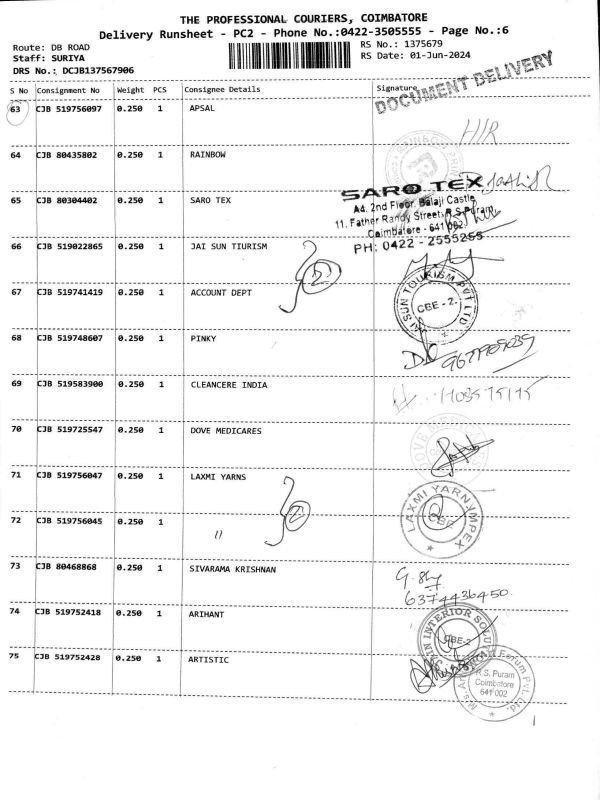 THE PROFESSIONAL COURIERS, COIMBATORE
Delivery Runsheet - PC2 - Phone No.:0422-3505555 - Page No.:6
Route: DB ROAD
Staff: SURIYA
DRS No.: DCJB137567906
RS No.: 1375679
RS Date: 01-Jun-2024
DOCUMENT DELIVERY
S No Consignment No Weight PCS Consignee Details Signature
63 CJB 519756097 0.250 1 APSAL
64 CJB 80435802 0.250 1 RAINBOW
65 CJB 80304402 0.250 1 SARO TEX
SARO TEX
A4, 2nd Floor, Balaji Castle
11, Father Randy Street, R.S.Puram
Coimbatore - 641 002
PH: 0422 - 2555255
66 CJB 519022865 0.250 1 JAI SUN TIURISM
2
67 CJB 519741419 0.250 1 ACCOUNT DEPT
JAI SUN TOURISM PVT LTD
CBE - 2.
68 CJB 519748607 0.250 1 PINKY
69 CJB 519583900 0.250 1 CLEANCERE INDIA
70 CJB 519725547 0.250 1 DOVE MEDICARES
71 CJB 519756047 0.250 1 LAXMI YARNS
2
LAXMI YARN IMPEX
CBE
72 CJB 519756045 0.250 1 "
73 CJB 80468868 0.250 1 SIVARAMA KRISHNAN
6374436450
74 CJB 519752418 0.250 1 ARIHANT
INTERIOR
CBE-2
75 CJB 519752428 0.250 1 ARTISTIC
Forum Pvt. Ltd.
R.S. Puram
Coimbatore
641 002
1